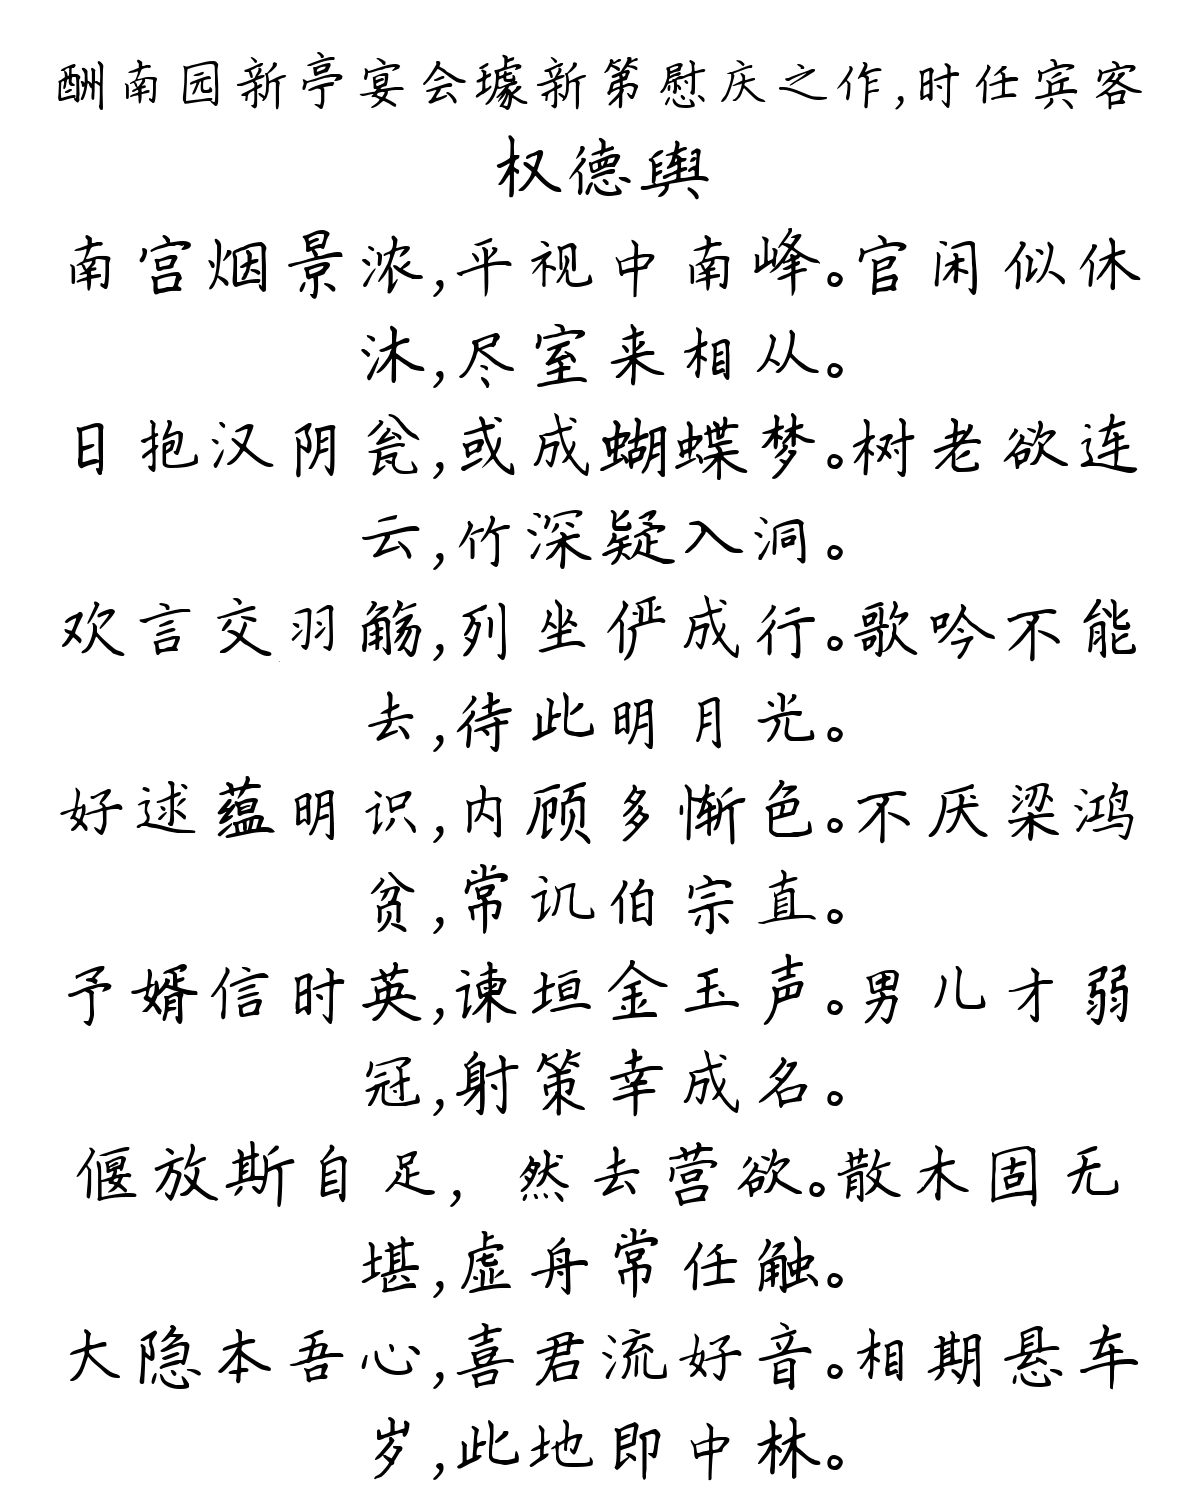 酬南园新亭宴会璩新第慰庆之作,时任宾客
权德舆
南宫烟景浓,平视中南峰。官闲似休
沐,尽室来相从。
日抱汉阴瓮,或成蝴蝶梦。树老欲连
云,竹深疑入洞。
欢言交羽觞,列坐俨成行。歌吟不能
去,待此明月光。
好逑蕴明识,内顾多惭色。不厌梁鸿
贫,常讥伯宗直。
予婿信时英,谏垣金玉声。男儿才弱
冠,射策幸成名。
偃放斯自足,然去营欲。散木固无
堪,虚舟常任触。
大隐本吾心,喜君流好音。相期悬车
岁,此地即中林。